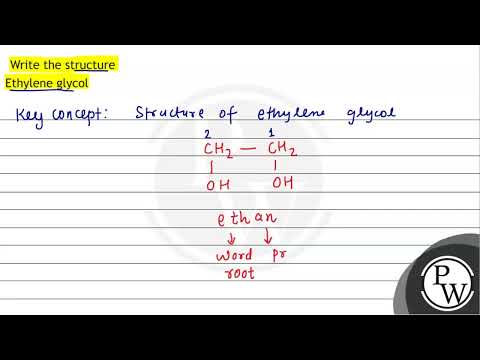 Write the structure
Ethylene glycol
Key concept: Structure of ethylene glycol
2 1
CH2 — CH2
OH OH
ethan
word pr
root
PW
PW